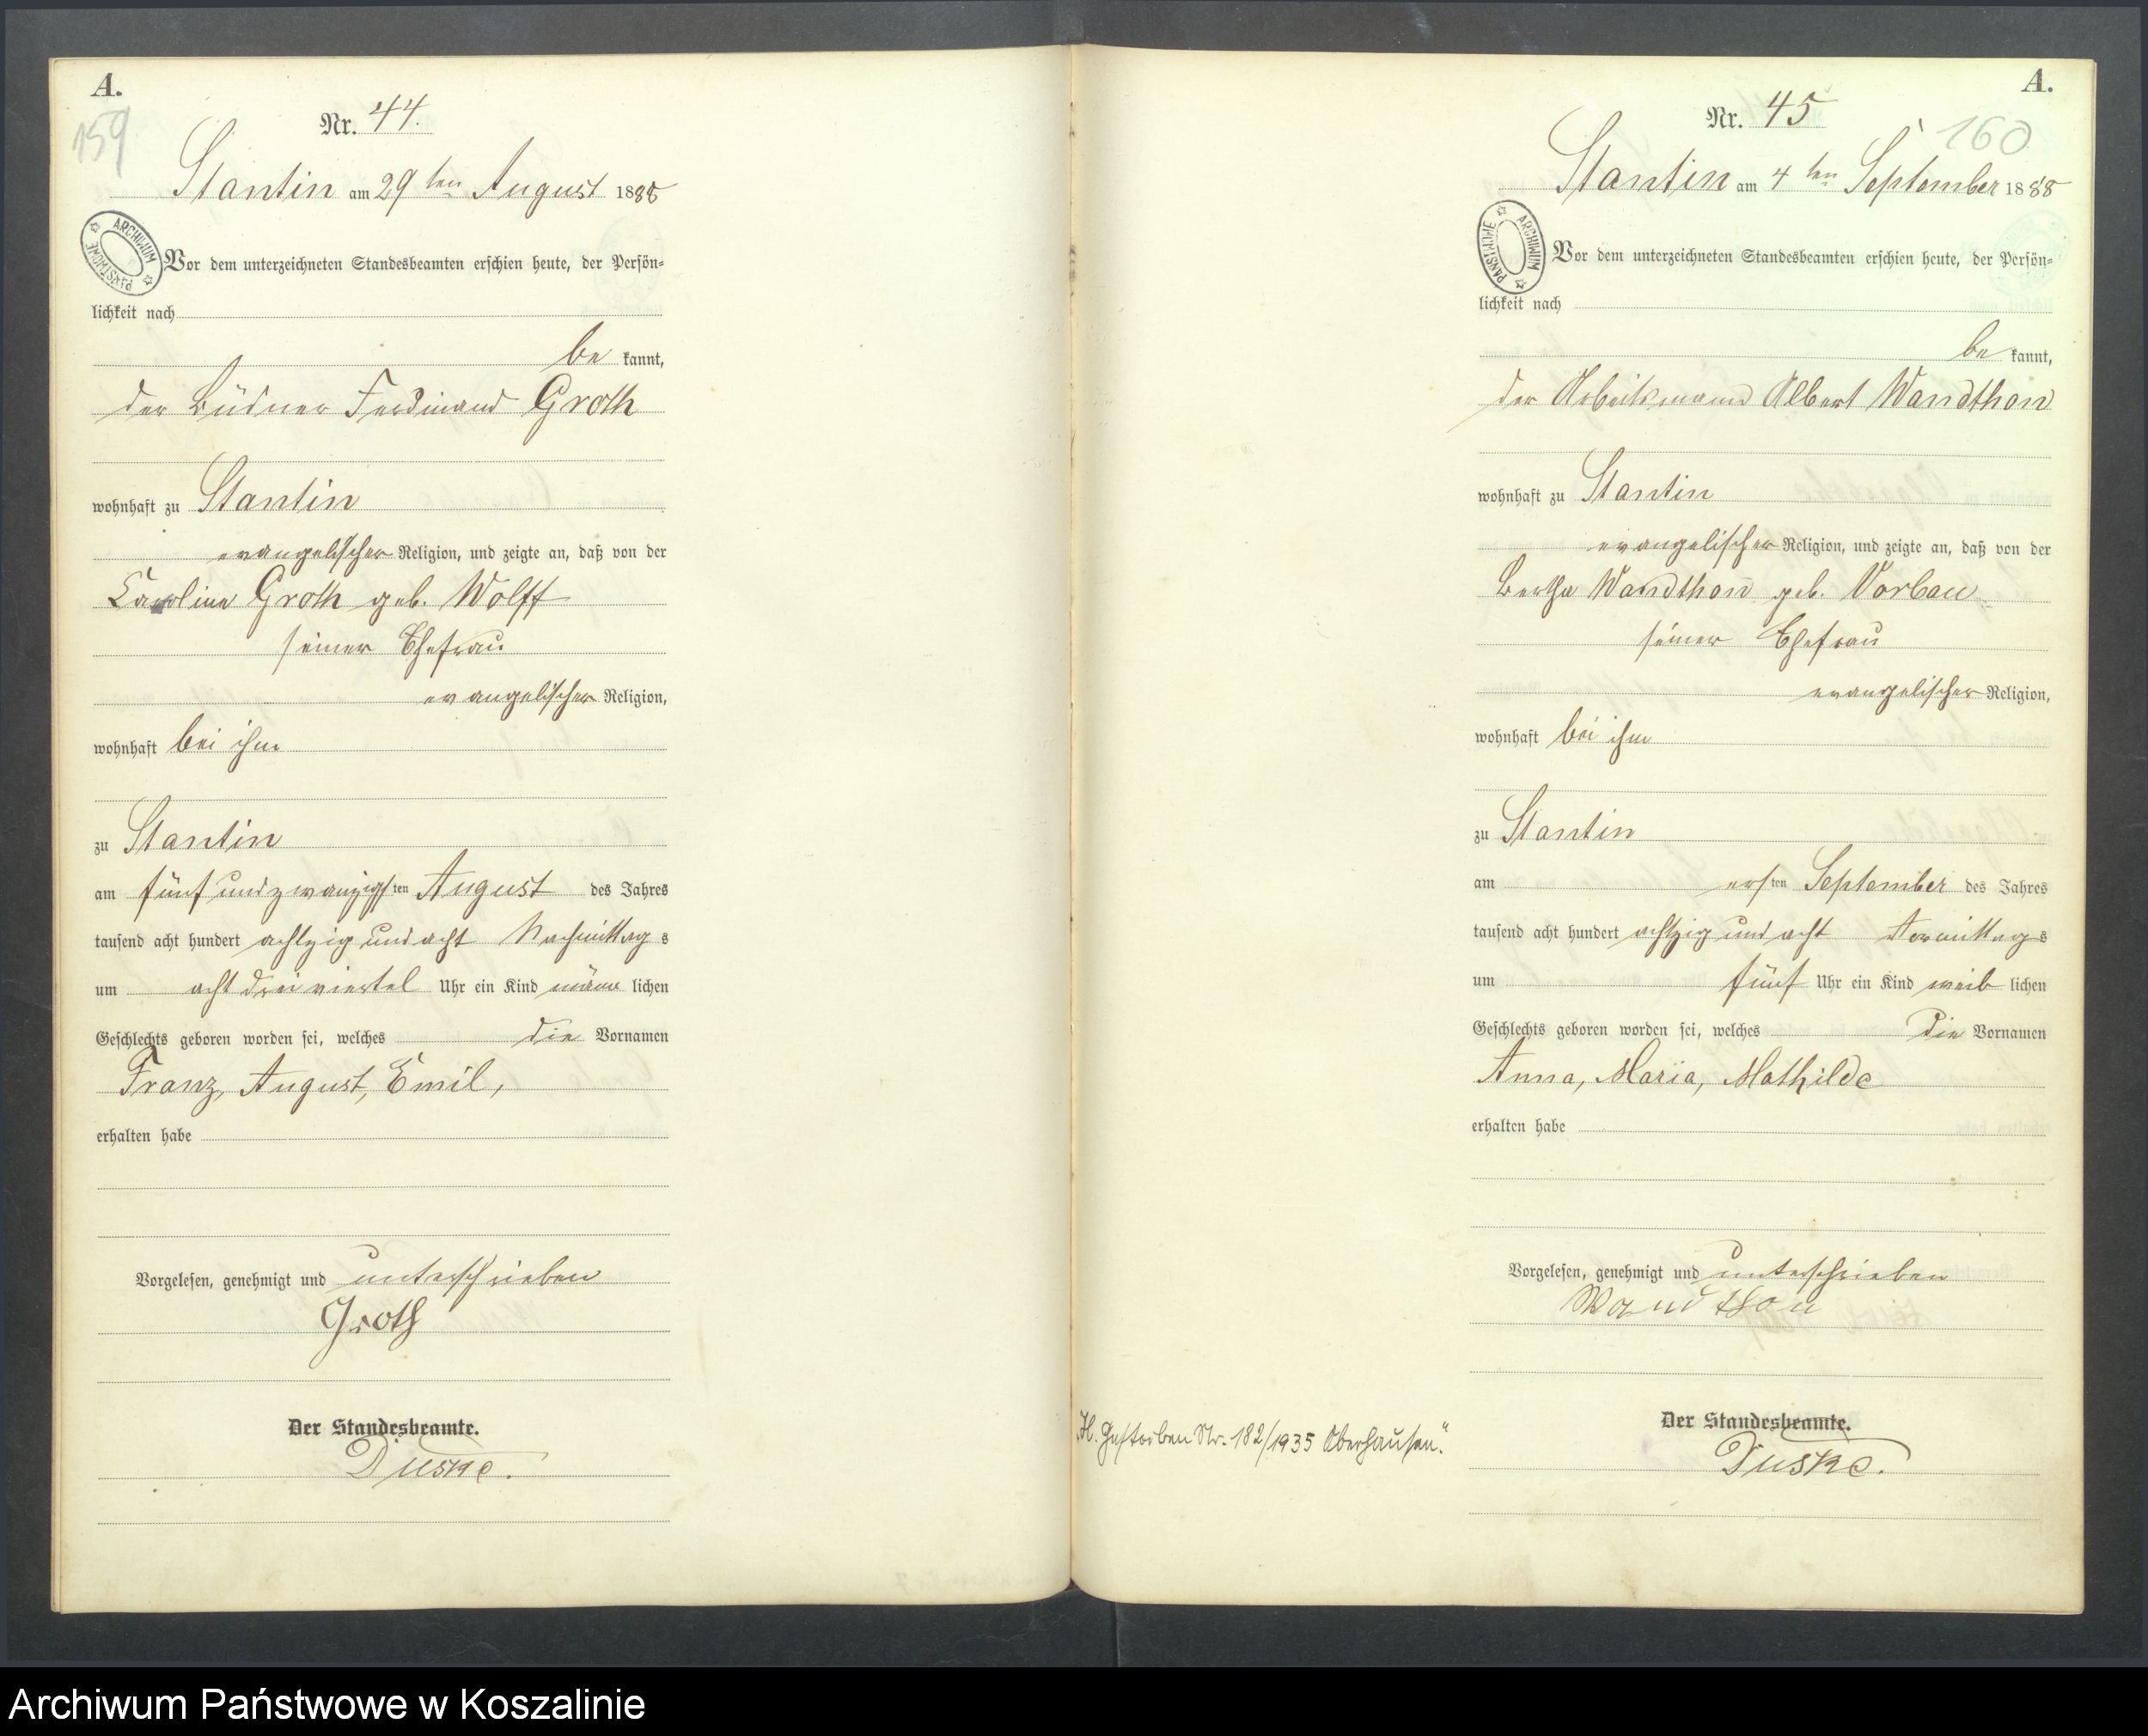 A.
159
Nr. 44.
Stantin am 29ten August 1888
ARCHIWUM PAŃSTWOWE
Vor dem unterzeichneten Standesbeamten erschien heute, der Persön-
lichkeit nach
be kannt,
der Büdner Ferdinand Groth
wohnhaft zu Stantin
evangelischer Religion, und zeigte an, daß von der
Caroline Groth geb. Wolff
seiner Ehefrau
evangelischer Religion,
wohnhaft bei ihm
zu Stantin
am fünf und zwanzigsten August des Jahres
tausend acht hundert achtzig und acht Nachmittags
um acht drei viertel Uhr ein Kind männlichen
Geschlechts geboren worden sei, welches die Vornamen
Franz, August, Emil,
erhalten habe
Vorgelesen, genehmigt und unterschrieben
Groth
Der Standesbeamte.
Duske.
A.
160
Nr. 45
Stantin am 4ten September 1888
ARCHIWUM PAŃSTWOWE
Vor dem unterzeichneten Standesbeamten erschien heute, der Persön-
lichkeit nach
be kannt,
der Arbeitsmann Albert Wandthon
wohnhaft zu Stantin
evangelischer Religion, und zeigte an, daß von der
Bertha Wandthon geb. Vorbau
seiner Ehefrau
evangelischer Religion,
wohnhaft bei ihm
zu Stantin
am ersten September des Jahres
tausend acht hundert achtzig und acht Vormittags
um fünf Uhr ein Kind weiblichen
Geschlechts geboren worden sei, welches die Vornamen
Anna, Maria, Mathilde
erhalten habe
Vorgelesen, genehmigt und unterschrieben
Wandthon
Der Standesbeamte.
Duske.
Gestorben Nr. 182/1935 Oberhausen."
Archiwum Państwowe w Koszalinie